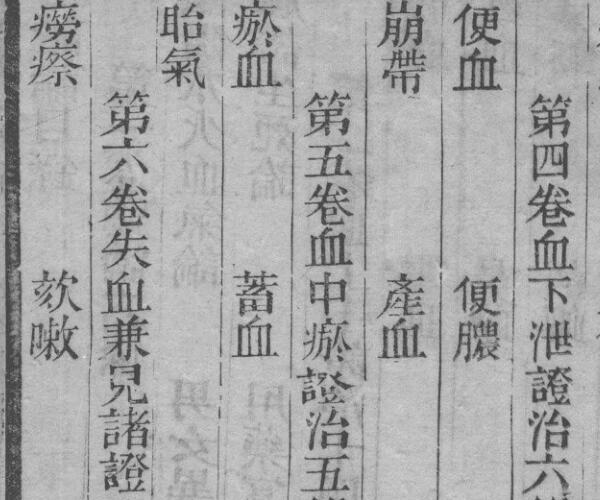 第四卷血下泄證治六
便血 便膿
崩帶 產血
第五卷血中瘀證治五
瘀血 蓄血
胎氣
第六卷失血兼見諸證
癆瘵 欬嗽